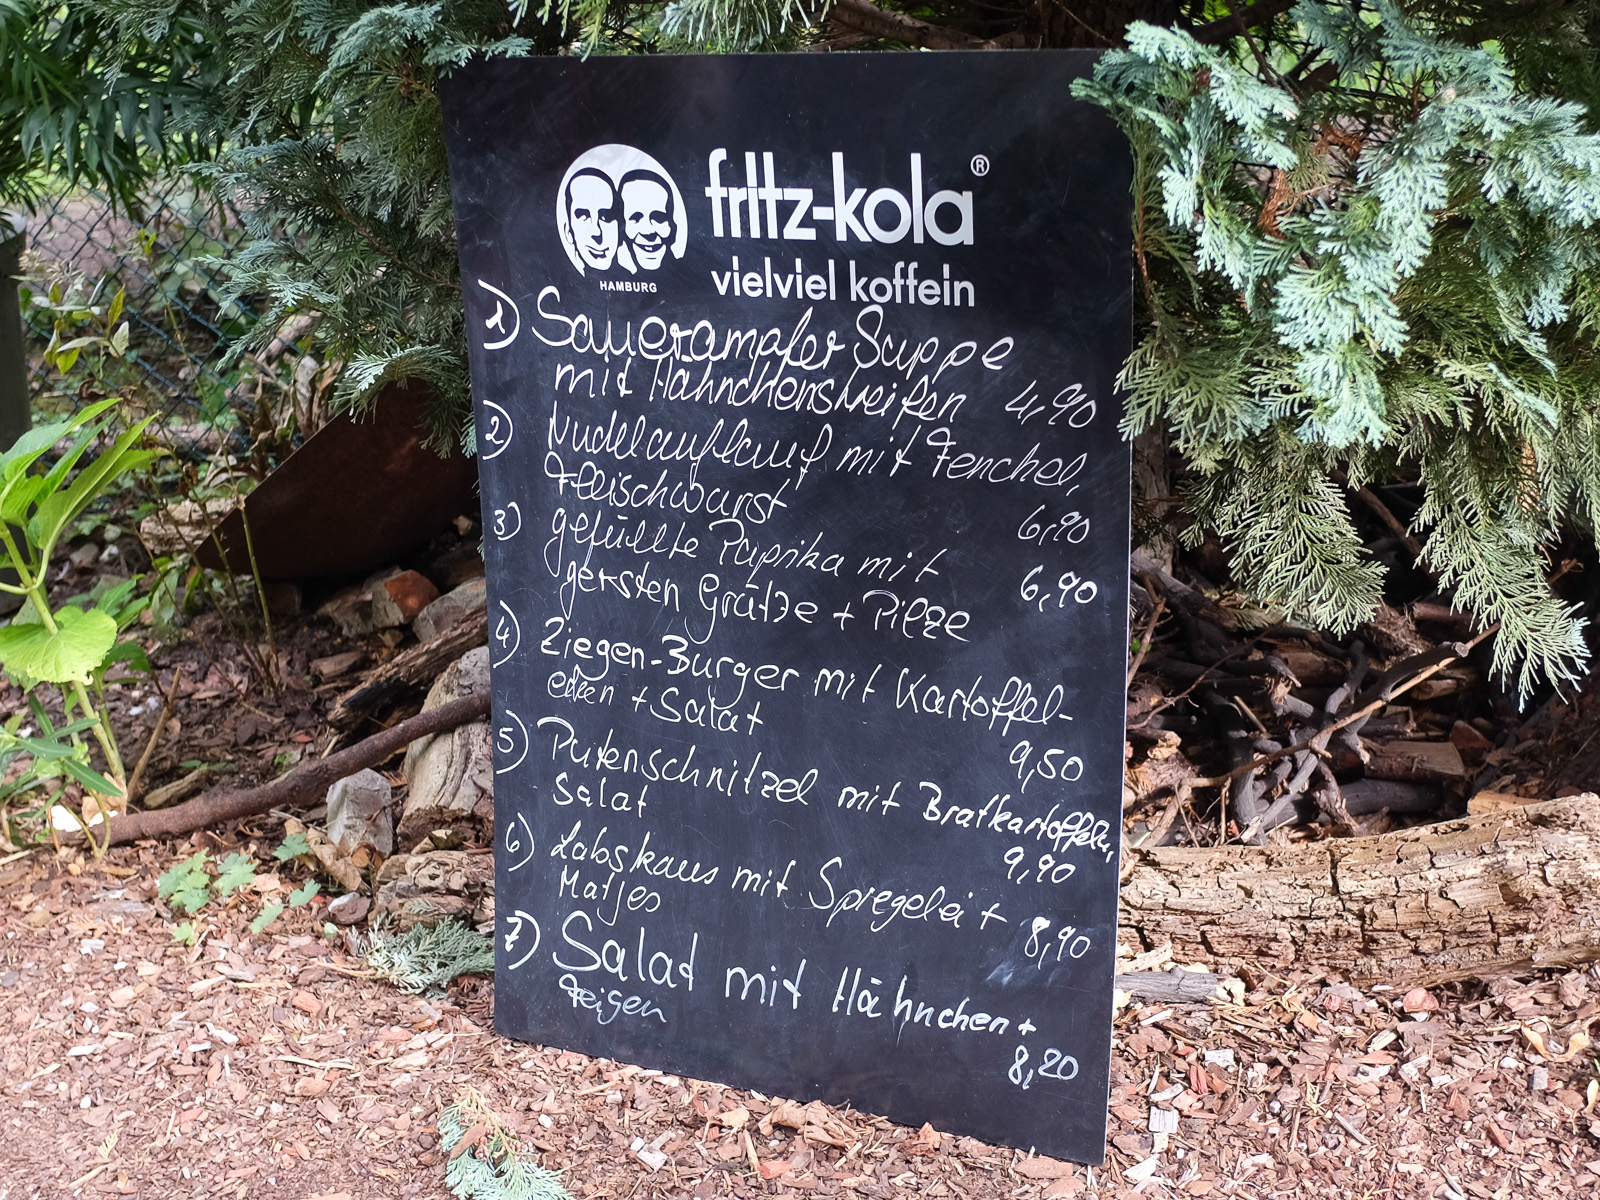 fritz-kola®
HAMBURG
vielviel koffein
1) Sauerampfer Suppe
mit Hähnchenstreifen 4,90
2) Nudelauflauf mit Fenchel,
Fleischwurst 6,90
3) gefüllte Paprika mit
gersten Grütze + Pilze 6,90
4) Ziegen-Burger mit Kartoffel-
ecken + Salat 9,50
5) Putenschnitzel mit Bratkartoffeln,
Salat 9,90
6) Labskaus mit Spiegelei +
Matjes 8,90
7) Salat mit Hähnchen +
Feigen 8,20